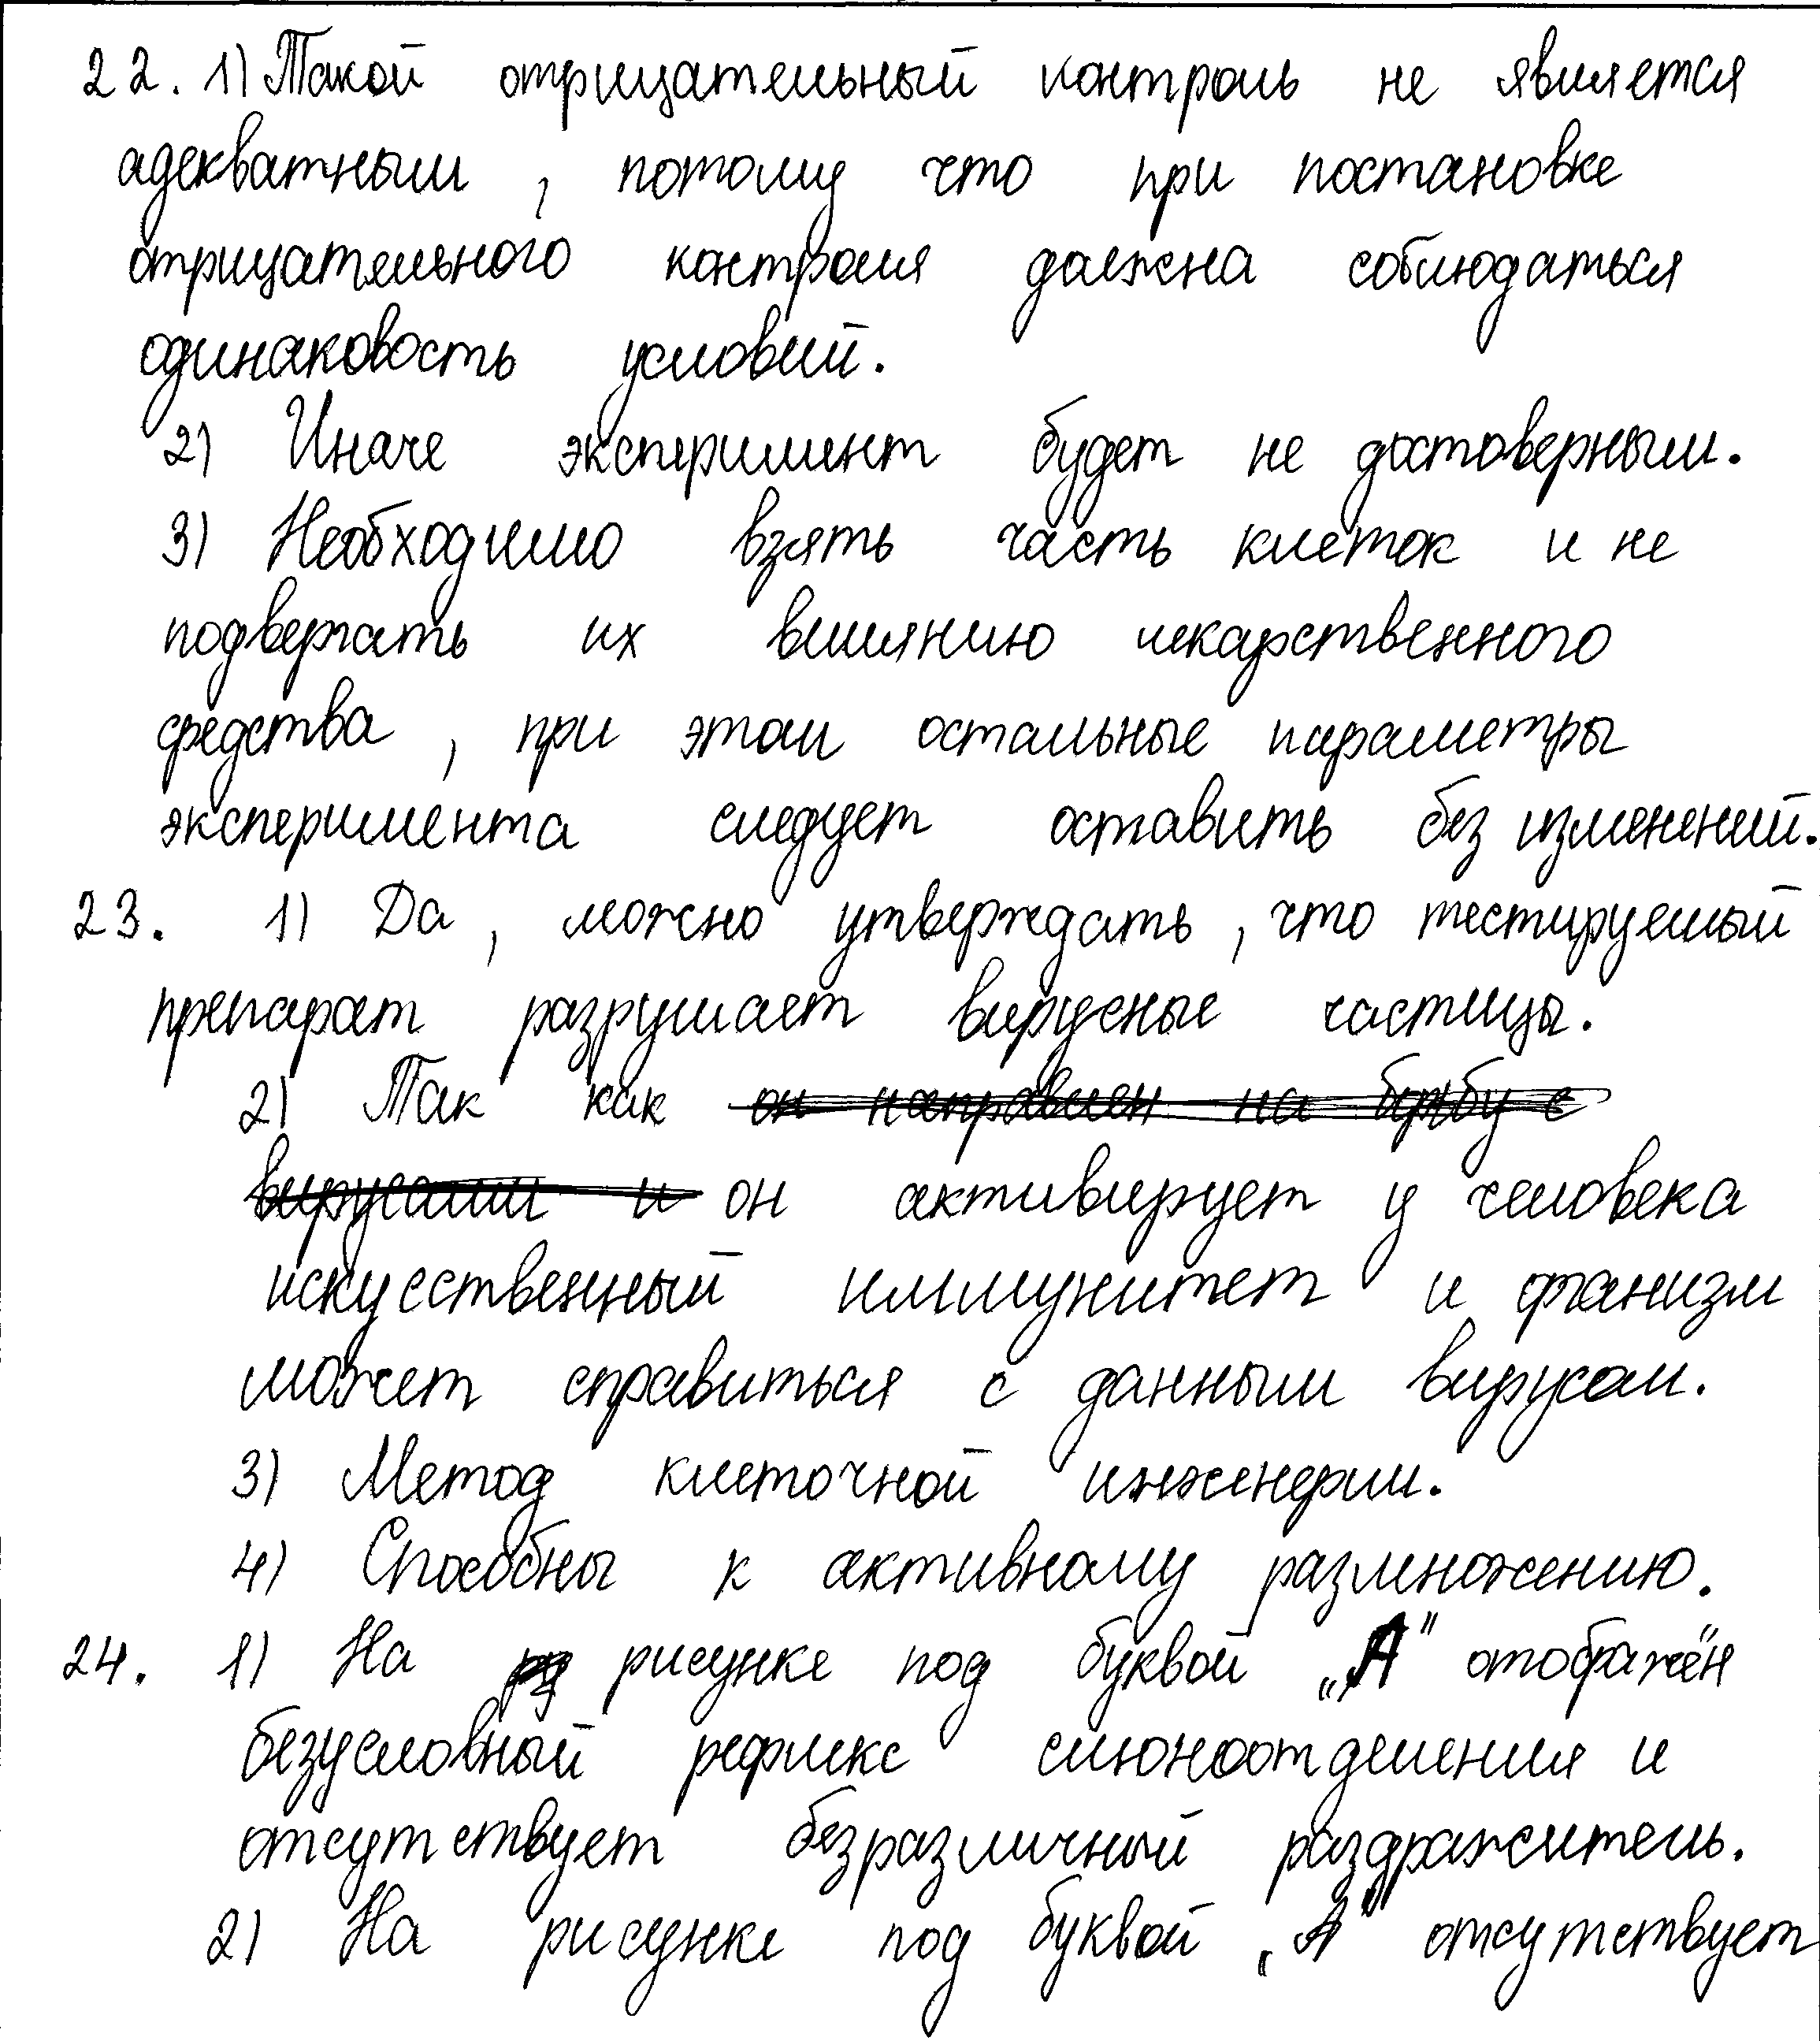 22. 1) Такой отрицательный контроль не является
адекватным, потому что при постановке
отрицательного контроля должна соблюдаться
одинаковость условий.
2) Иначе эксперимент будет не достоверным.
3) Необходимо взять часть клеток и не
подвергать их влиянию лекарственного
средства, при этом остальные параметры
эксперимента следует оставить без изменений.
23. 1) Да, можно утверждать, что тестируемый
препарат разрушает вирусные частицы.
2) Так как он направлен на борьбу с
вирусами и он активирует у человека
искусственный иммунитет и организм
может справиться с данным вирусом.
3) Метод клеточной инженерии.
4) Способны к активному размножению.
24. 1) На рисунке под буквой „А" отображён
безусловный рефлекс слюноотделения и
отсутствует безразличный раздражитель.
2) На рисунке под буквой „А" отсутствует